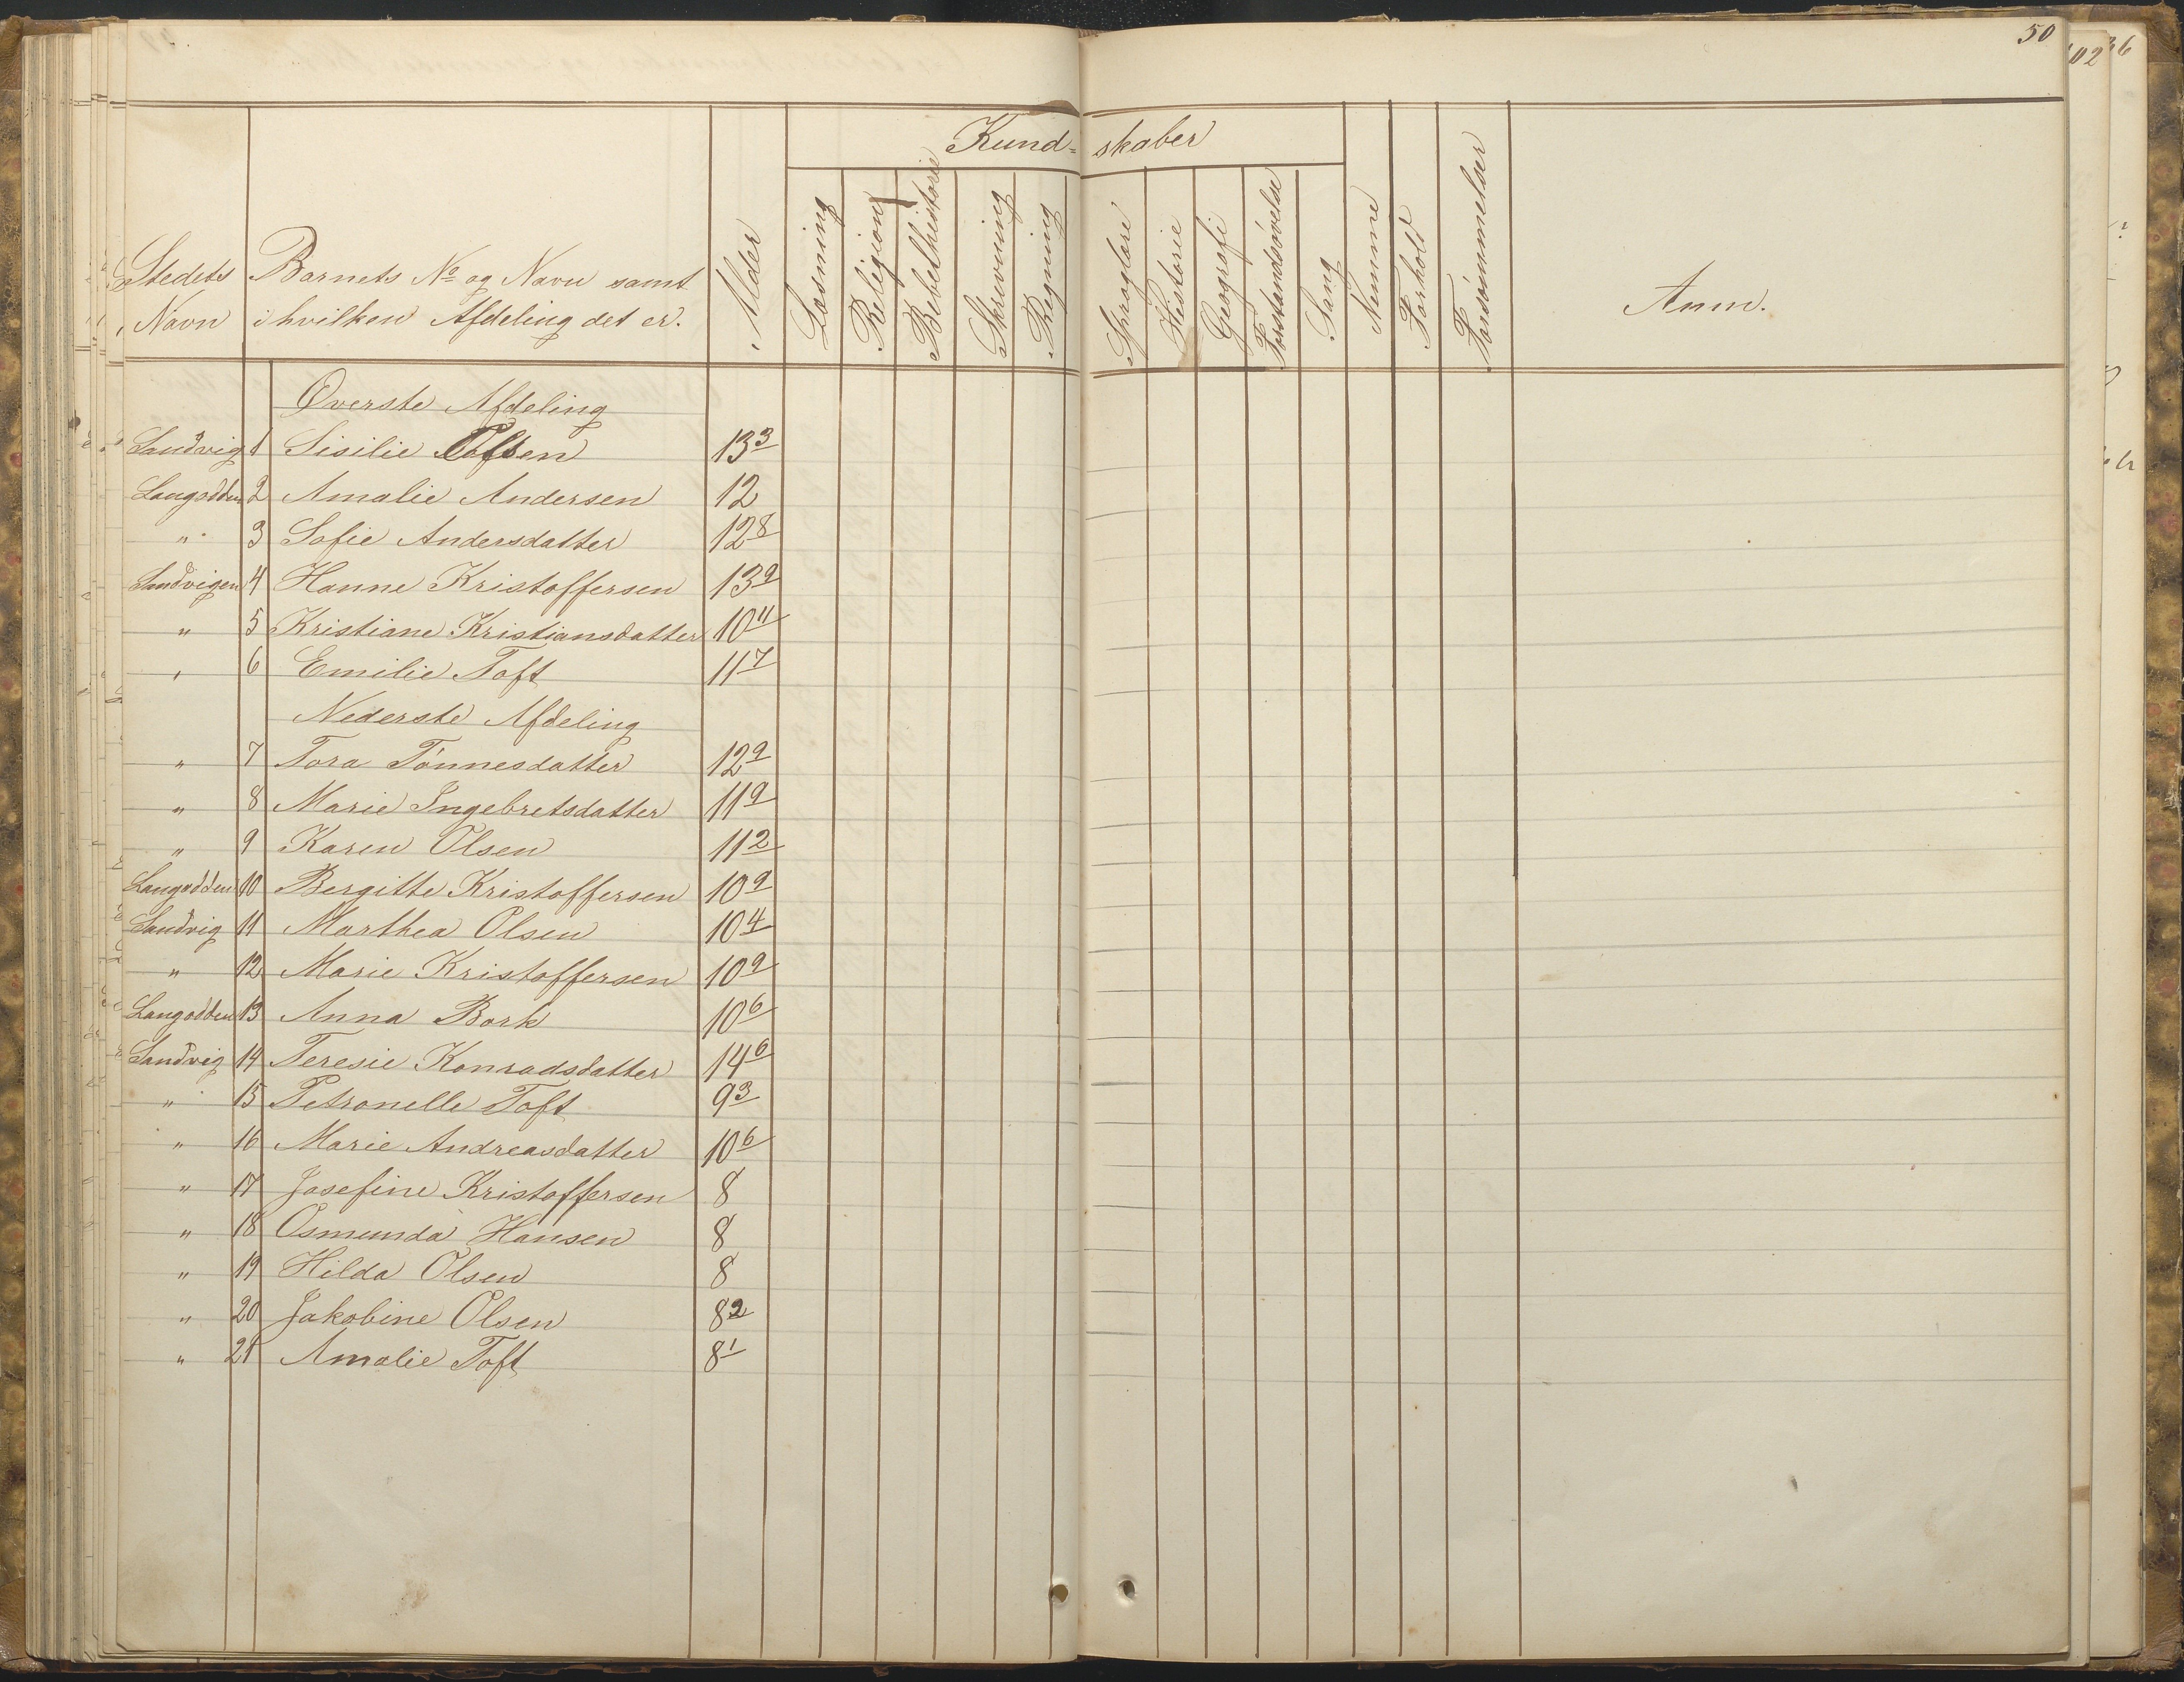 50
Kund- skaber
Stedets Navn
Barnets No og Navn samt
i hvilken Afdeling det er.
Alder
Læsning
Religion
Bibelhistorie
Skrivning
Regning
Sproglære
Historie
Geografi
Forstandsøvelse
Sang
Nemme
Forhold
Forsømmelser
Anm.
Øverste Afdeling
Sandvig 1 Sisilie Olsen 13 3
Langodden 2 Amalie Andersen 12
" 3 Sofie Andersdatter 12 8
Sandvigen 4 Hanne Kristoffersen 13 9
" 5 Kristiane Kristiansdatter 10 11
" 6 Emilie Toft 11 7
Nederste Afdeling
" 7 Tora Tönnesdatter 12 9
" 8 Marie Ingebretsdatter 11 9
" 9 Karen Olsen 11 2
Langodden 10 Bergitte Kristoffersen 10 9
Sandvig 11 Marthea Olsen 10 4
" 12 Marie Kristoffersen 10 9
Langodden 13 Anna Bork 10 6
Sandvig 14 Teresie Konradsdatter 14 6
" 15 Petronelle Toft 9 3
" 16 Marie Andreasdatter 10 6
" 17 Josefine Kristoffersen 8
" 18 Osmunda Hansen 8
" 19 Hilda Olsen 8
" 20 Jakobine Olsen 8 2
" 21 Amalie Toft 8 1